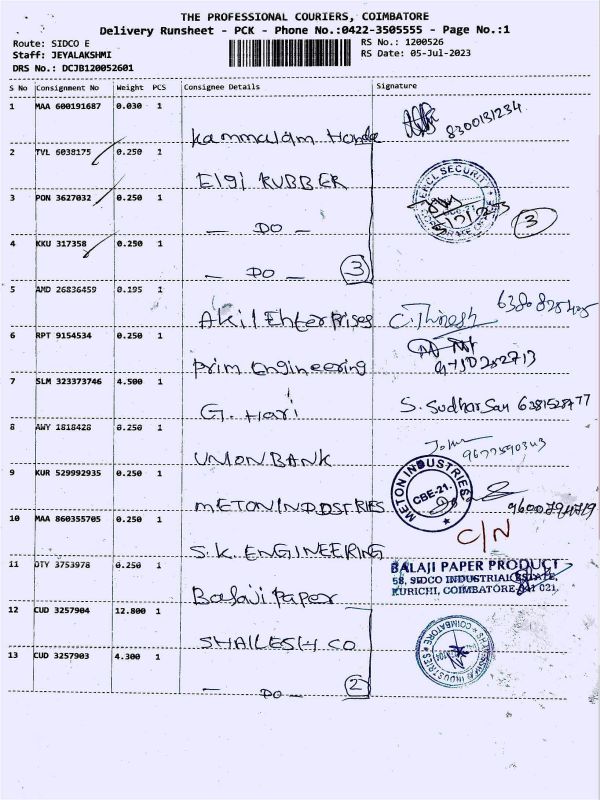 THE PROFESSIONAL COURIERS, COIMBATORE
Delivery Runsheet - PCK - Phone No.:0422-3505555 - Page No.:1
Route: SIDCO E
RS No.: 1200526
Staff: JEYALAKSHMI
RS Date: 05-Jul-2023
DRS No.: DCJB120052601
S No Consignment No Weight PCS Consignee Details Signature
1 MAA 600191687 0.030 1 Kammalam Honda 8300131234
2 TVL 6038175 0.250 1 Elgi RUBBER
3 PON 3627032 0.250 1 — DO — 3
4 KKU 317358 0.250 1 — DO — 3
5 AMD 26836459 0.195 1 Akil Enterprises C. Thinesh
6 RPT 9154534 0.250 1 Prim Engineering
7 SLM 323373746 4.500 1 G. Hari S. Sudharsan
8 AWY 1818428 0.250 1 UNION BANK
9 KUR 529992935 0.250 1 METON INDDSTRIES METON INDUSTRIES CBE-21.
10 MAA 860355705 0.250 1 S.K. ENGINEERING C/N
11 OTY 3753978 0.250 1 Balaji Paper
BALAJI PAPER PRODUCT
58, SIDCO INDUSTRIAL ESTATE,
KURICHI, COIMBATORE-641 021.
12 CUD 3257904 12.800 1 SHAILESH CO
13 CUD 3257903 4.300 1 — DO — 2